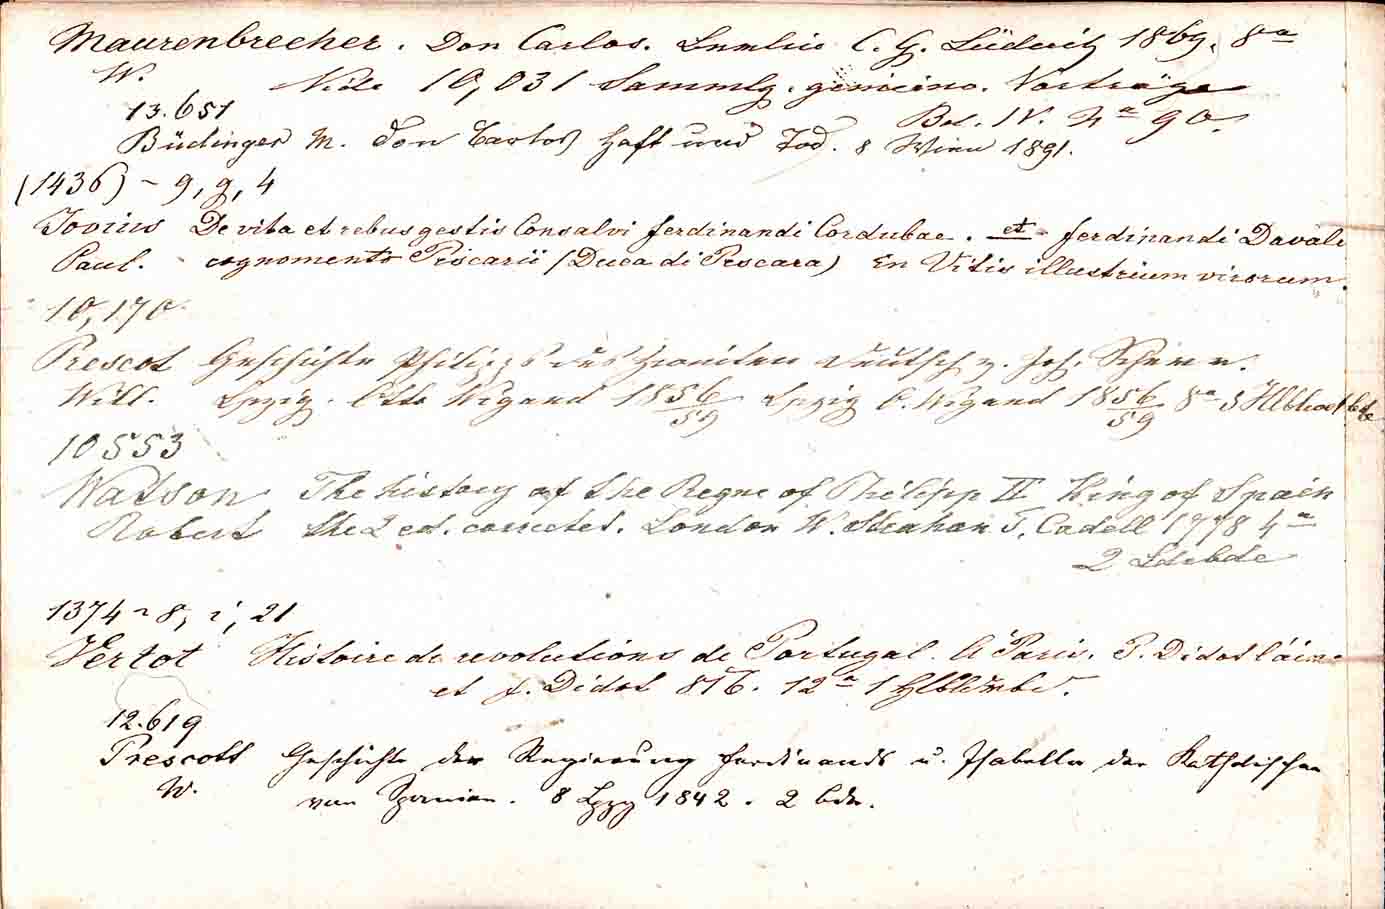 Maurenbrecher. Don Carlos. Berlin C. G. Lüderitz 1869. 8°
W. Vide 10,031 Sammlg. gemeino. Vorträge
13.651 Bd. IV. N° 90.
Büdinger M. Don Carlos Haft und Tod. 8 Wien 1891.
(1436) - 9, g, 4
Jovius De vita et rebus gestis Consalvi ferdinandi Cordubae. et ferdinandi Davali
Paul. cognomento Piscarii (Duca di Pescara) En Vitis illustrium virorum.
10,170
Prescot Geschichte Philipps des Zweiten Deutsch v. Joh. Scherr.
Will. Lpzig. Otto Wigand 1856/59 Lpzig O. Wigand 1856/59 8° 5
10553
Watson The history of the Regne of Philipp II King of Spain
Robert the 2 ed. corrected. London W. Strahan T. Cadell 1778 4°
2 Ldrbde
1374 - 8, i, 21
Vertot Histoire de revolutions de Portugal. A Paris. P. Didot l'áine
et f. Didot 816. 12° 1
12.619
Prescott Geschichte der Regierung Ferdinands u. Isabella der Katholischen
W. von Spanien. 8 Lpzg 1842. 2 bde.